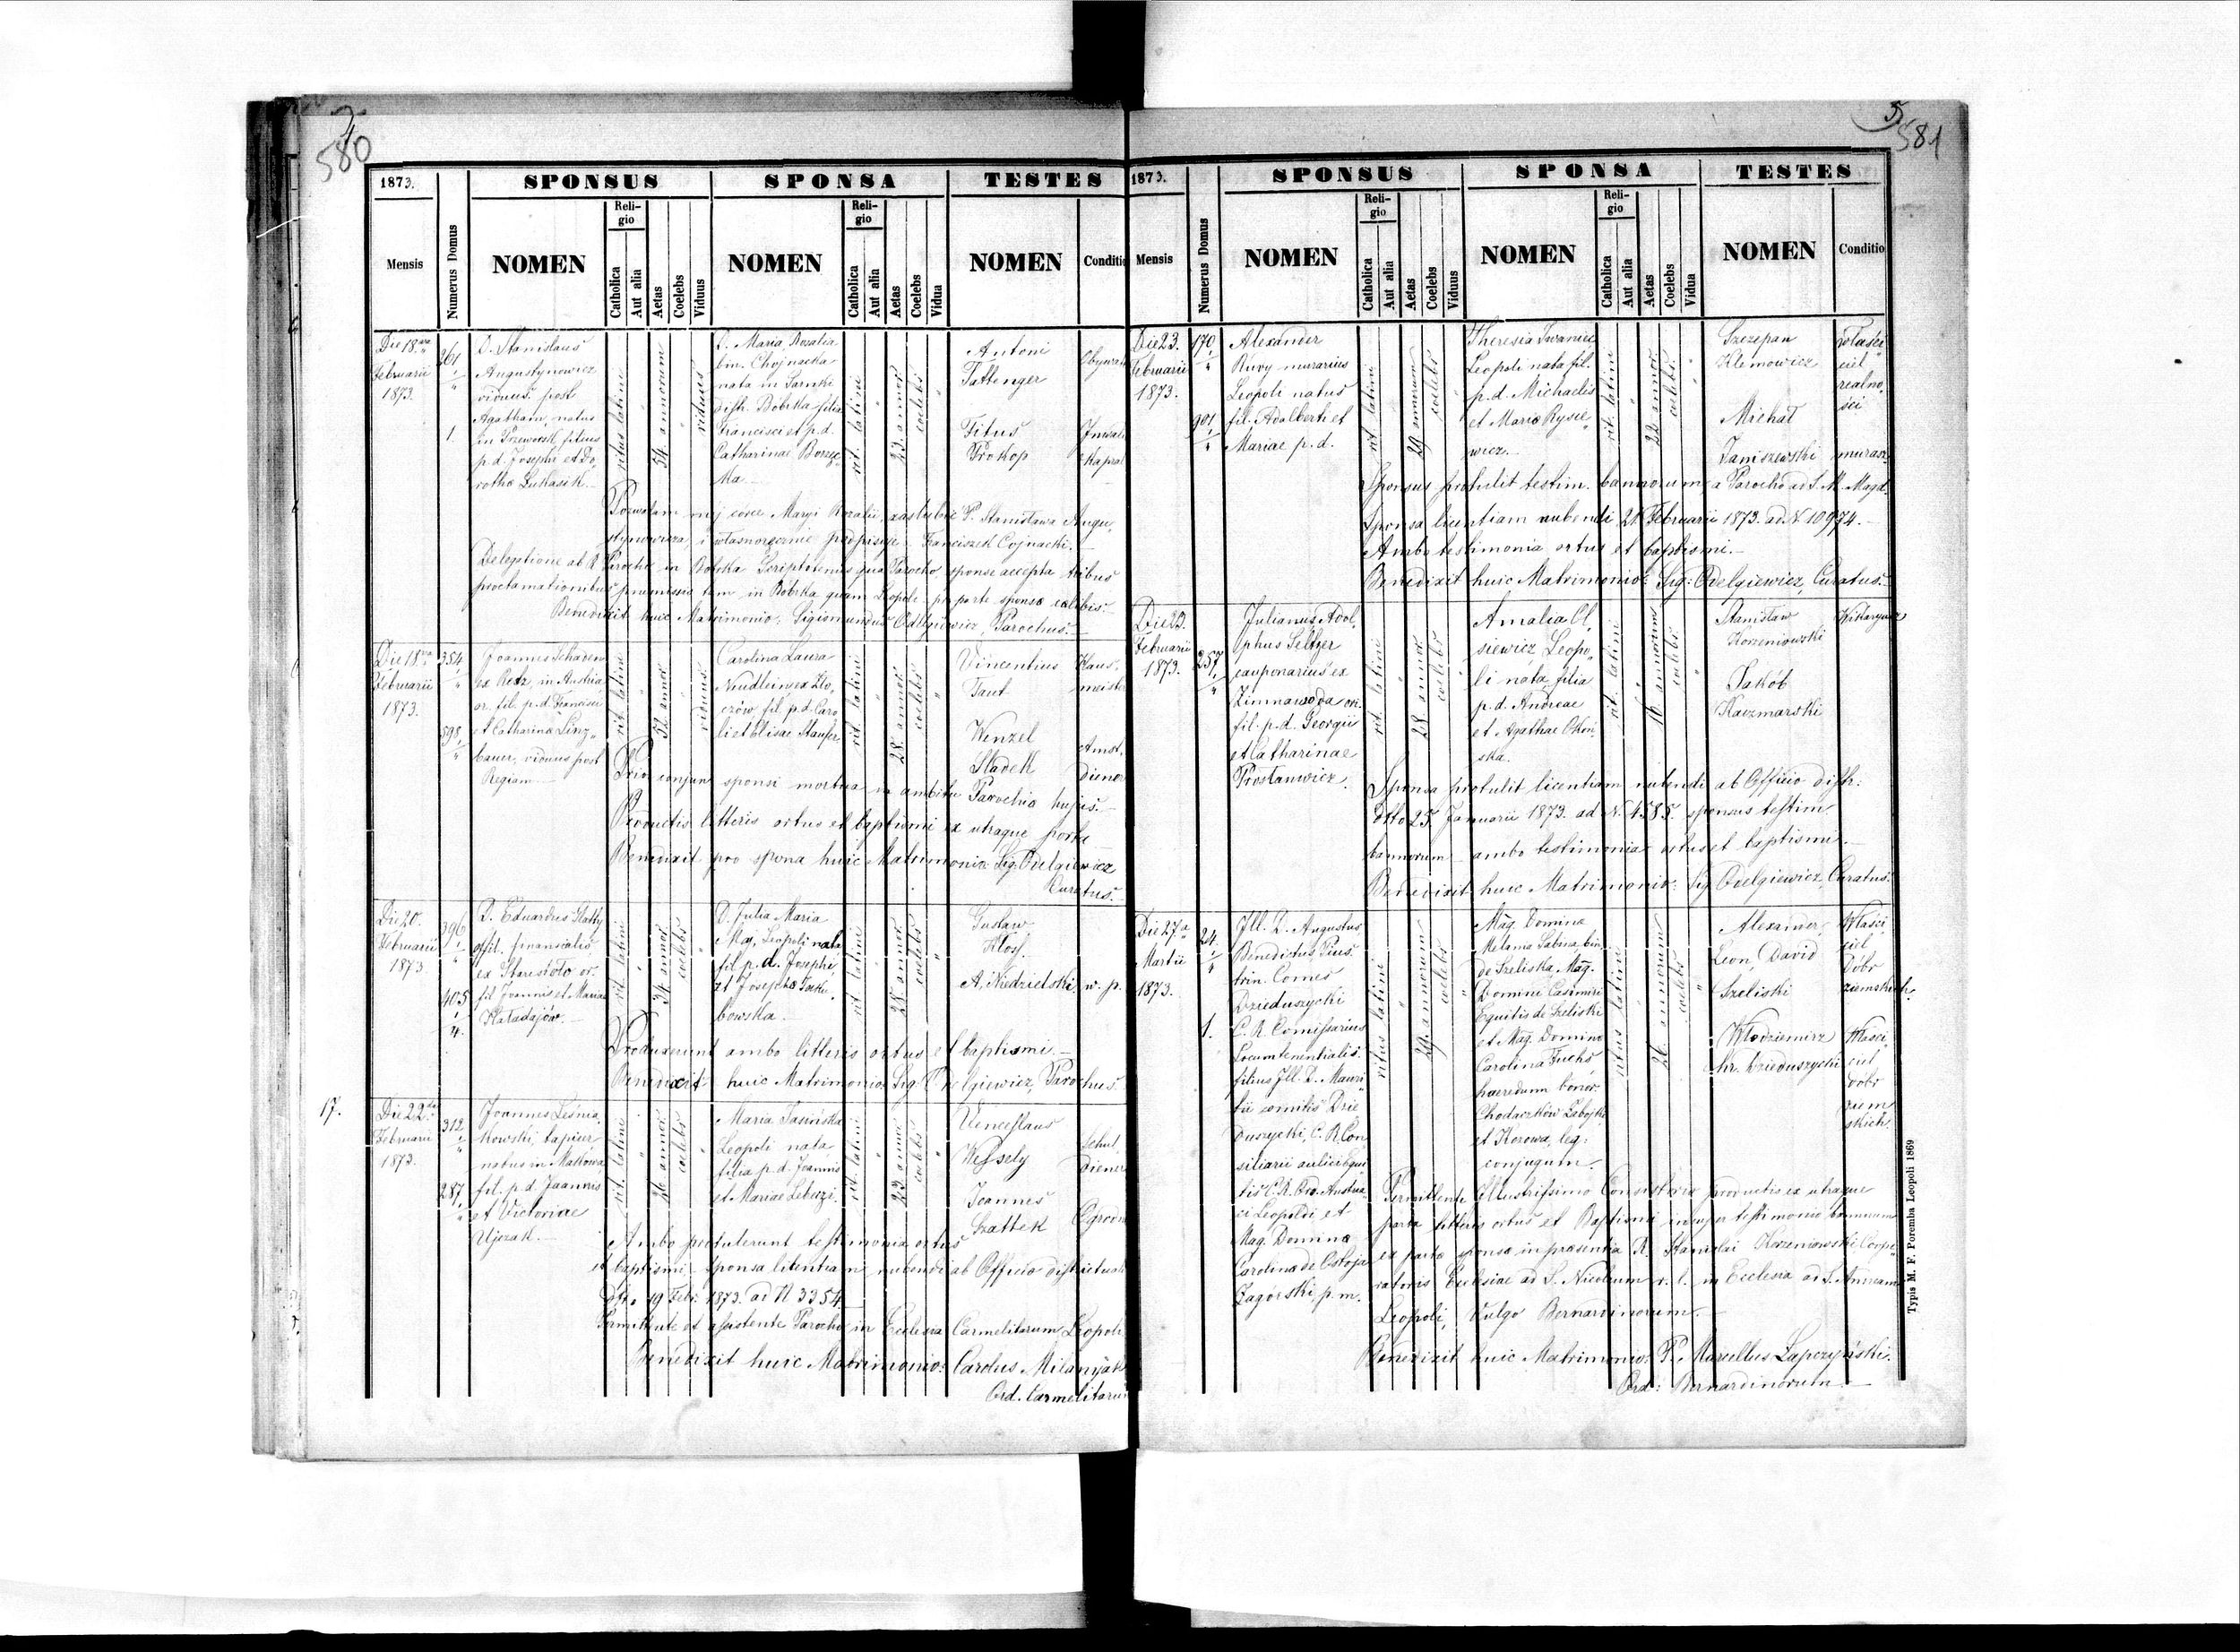 580
1873.
SPONSUS
SPONSA
TESTES
Mensis
Numerus Domus
NOMEN
Religio
Catholica
Aut alia
Aetas
Coelebs
Viduus
NOMEN
Religio
Catholica
Aut alia
Aetas
Coelebs
Vidua
NOMEN
Conditio
Die 18
Februarii
1873.
261
1.
D. Stanislaus
Augustynowicz
viduus post
Agatham, natus
in Przeworsk filius
p.d. Josephi et Do,
rothea Lukasik.
ritus latini
54 annorum
viduus
D. Maria Rosalia
bin. Chojnacka
nata in Sarnki
distr. Bobrka filia
Francisci et p.d.
Catharinae
rit. latini
23 annor
coelebs
Antoni
Tattenger
Titus
Prokop
Pozwalam mej córce Maryi Rozalii zaślubić P. Stanisława Augu,
stynowicza, i własnoręcznie podpisuję. Franciszek Cojnacki.
Delegatione ab R. Parocho in Bobrka Scriptotenus qua Parocho sponsae accepta tribus
proclamationibus praemissis tam in Bobrka quam Leopoli
Benedixit huic Matrimonio: Sigismundus Odelgiewicz, Parochus.
Die 18
Februarii
1873.
354
595
Joannes Schaden
ex Retz, in Austria
or. fil. p.d. Francisci
et Catharina Linz,,
bauer, viduus post
Regiam
rit. latini
52 annor
viduus
Carolina Laura
Neudlein ex Zło,
czów, fil. p.d. Caro
li et Elisae Staufer
rit. latini
28 annor
coelebs
Vincentius
Taut
Haus,
meister
Wenzel
Sladek
Amts,
diener
Prior conjunx sponsi mortua in ambitu Parochia hujus.
Productis litteris ortus et baptismi ex utraque parte
Benedixit pro spona huic Matrimonio: Sig. Odelgiewicz
Curatus.
Die 20.
Februarii
1873
396
405
4.
D. Eduardus
offil. financialis
ex or.
fil Joannis et Maria
rit latini
34 annor
coelebs
D. Julia Maria
Maj, Leopoli nata
fil p. d. Josephi
et Josepha
bowska.
rit latini
28 annor
coelebs
Gustaw
Kloss.
A. Niedzielski, w. p.
Produxerunt ambo litteris ortus et baptismi.
Benedixit huic Matrimonio Sig. Odelgiewicz, Parochus.
17.
Die 22
Februarii
1873.
312
287
Joannes Leśnia,
kowski, tapicer
natus in Makowa
fil. p.d. Joannis
et Victoriae
Ujczak.
rit. latini
26 annor
coelebs
Maria Jasińska
Leopoli nata
filia p.d. Joannis
et Mariae
rit. latini
23 annor
coelebs
Venceslaus
Wessely
Schul
diener
Joannes
Szattek
Ambo protulerunt testimonia ortus
et baptismi, sponsa licentiam nubendi ab Officio districtuali
dtto 19 Febr. 1873. ad N 3354.
Permittente et assistente Parocho in Ecclesia Carmelitarum Leopoli
Benedixit huic Matrimonio: Carolus
Ord. Carmelitarum
5.
581
1873.
SPONSUS
SPONSA
TESTES
Mensis
Numerus Domus
NOMEN
Religio
Catholica
Aut alia
Aetas
Coelebs
Viduus
NOMEN
Religio
Catholica
Aut alia
Aetas
Coelebs
Vidua
NOMEN
Conditio
Die 23.
Februarii
1873.
170
901
Alexander
murarius
Leopoli natus
fil. Adalberti et
Mariae p. d.
rit. latini
29 annorum
coelebs
Theresia Iwaniec
Leopoli nata fil.
p.d. Michaelis
et Maria Rysie,
wicz.
rit. latini
22 annor
coelebs
Szczepan
Klemowicz
właści
ciel
realno,
ści
Michał
Janiszewski
murarz
Sponsus protulit testim. bannorum a Parocho ad S. M. Magd.
Sponsa licentiam nubendi 21 Februarii 1873. ad N 10974.
Ambo testimonia ortus et baptismi.
Benedixit huic Matrimonio: Sig: Odelgiewicz, Curatus.
Die 23.
Februarii
1873.
257
Julianus Adol,
phus Seltzer
cauponarius ex
Zimnawoda or.
fil. p.d. Georgii
et Catharinae
Prostanwicz.
rit. latini
28 annor
coelebs
Amalia Ol,
siewicz, Leopo,
li nata, filia
p.d. Andreae
et Agathae
ska.
rit. latini
16 annorum
coelebs
Stanisław
Korzeniowski
Wikaryusz
Jakób
Kaczmarski
Sponsa protulit licentiam nubendi ab Officio distr.
dtto 25 Januarii 1873. ad N. 4585. sponsus testim
bannorum ambo testimonia ortus et baptismi.
Benedixit huic Matrimonio: Sig Odelgiewicz, Curatus.
Die 27
Martii
1873.
24.
1.
Ill. D. Augustus
Benedictus Pius
trin. Comes
Dzieduszycki
C. R. Comissarius
Locumtenentialis.
filius Ill. D. Mauri
tii comitis Dzie
duszycki, C. R. Con,
siliarii aulici Equi
tis C. R. Ord. Austria
ci Leopoldi et
Mag. Domina
Carolina de Ostoja
Zagórski, p.m.
ritus latini
29 annorum
coelebs
Mag. Domina
Melania Sabina, bin.
de Szeliska, Mag.
Domini Casimiri
Equitis de Szeliski
et Mag. Domina
Carolina Fuchs
haeredum bonor.
Chodaczków
et Horowa, leg:
conjugum.
ritus latini
21 annorum
coelebs
Alexander,
Leon, David
Szeliski
Właści
ciel
dóbr
ziemskich.
Włodzimirz
hr. Dzieduszycki
Właści
ciel
dóbr
ziem
skich.
Permittente Illustrissimo Consistorio productis ex utraque
parte litteris ortus et Baptismi insuper testimonio bannum
ex parte sponsa in praesentia R. Stanislai Korzeniowski Coope,
ratoris Ecclesiae ad S. Nicolaum r. l. in Ecclesia ad S. Andream
Leopoli, Vulgo Bernardinorum.
Benedixit huic Matrimonio: P. Marcellus Łapczyński.
Ord: Bernardinorum.
Typis M. F. Poremba Leopoli 1869